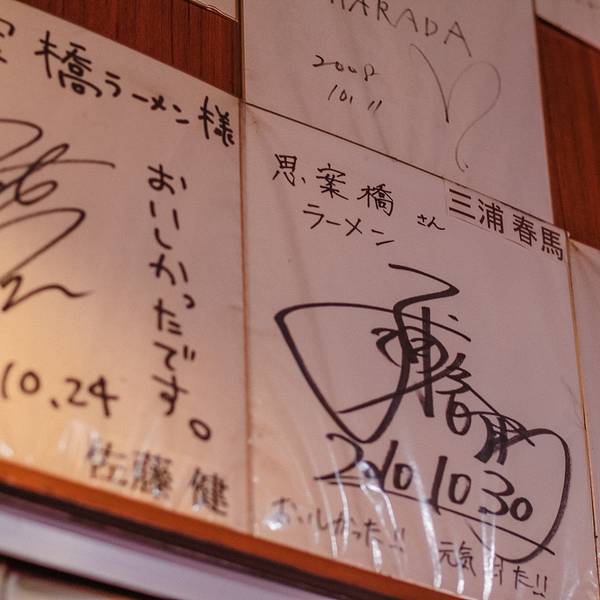 橋ラーメン様
おいしかったです。
10.24
佐藤 健
HARADA
2008
10.11
思案橋
ラーメン さん
三浦 春馬
2010 10 30
おいしかった!!
元気 出た!!